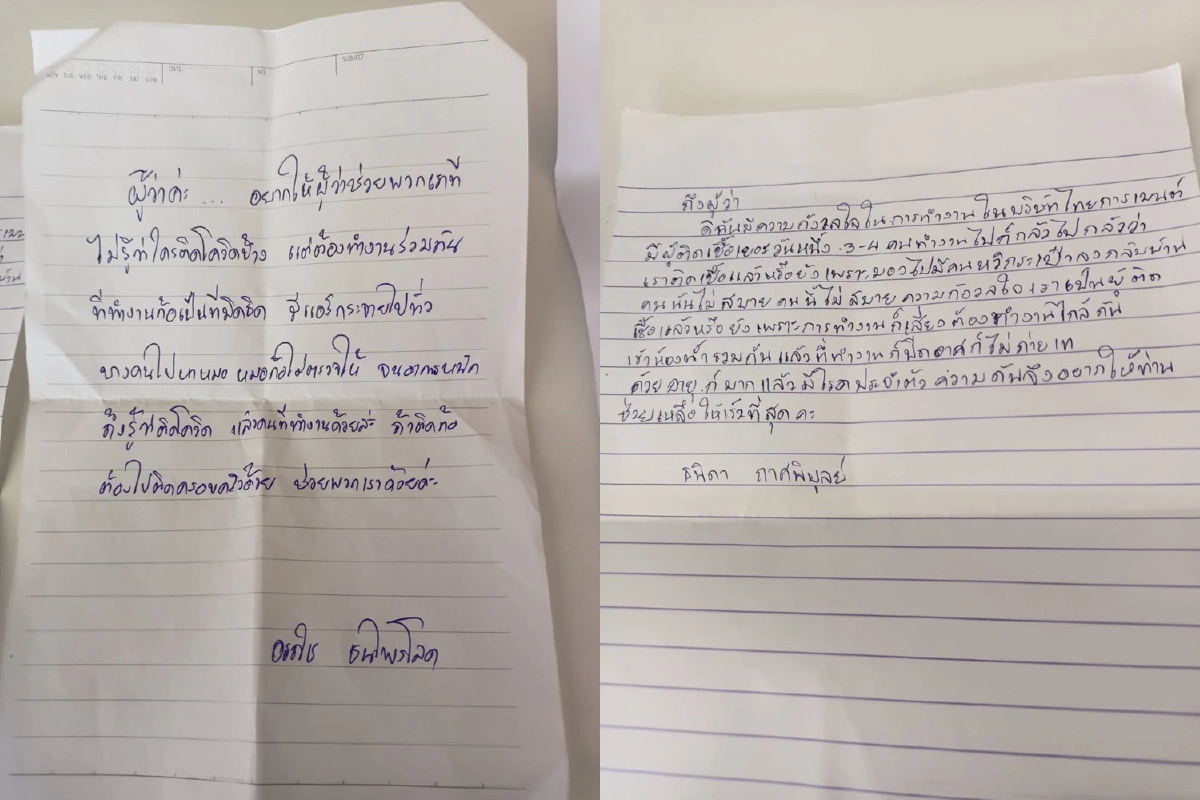 MON TUE WED THU FRI SAT SUN
DATE
NO.
SUBJECT
ผู้ว่าค่ะ ... อยากให้ผู้ว่าช่วยพวกเราที
ไม่รู้ว่าใครติดโควิดบ้าง แต่ต้องทำงานร่วมกัน
ที่ทำงานก้อเป็นที่มิดชิด มีแอร์กระจายไปทั่ว
บางคนไปหาหมอ หมอก้อไม่ตรวจให้ จนอาการหนัก
ถึงรู้ว่าติดโควิด แล้วคนที่ทำงานด้วยล่ะ ถ้าติดก้อ
ต้องไปติดครอบครัวด้วย ช่วยพวกเราด้วยค่ะ
ถึงผู้ว่า
ดิฉันมีความกังวลใจในการทำงานในบริษัทไทยการเมนต์
มีผู้ติดเชื้อเยอะวันหนึ่ง 3-4 คนทำงานไปก็กลัวไปกลัวว่า
เราติดเชื้อแล้วหรือยังเพราะมองไปมีคนหิ้วกระเป๋าลงกลับบ้าน
คนนั้นไม่สบายคนนี้ไม่สบายความกังวลใจเราเป็นผู้ติด
เชื้อแล้วหรือยังเพราะการทำงานก็เสี่ยงต้องทำงานใกล้กัน
เข้าห้องน้ำรวมกันแล้วที่ทำงานก็ปิดอากาศก็ไม่ถ่ายเท
ด้วยอายุก็มากแล้วมีโรคประจำตัวความดันจึงอยากให้ท่าน
ช่วยเหลือให้เร็วที่สุดคะ
ธนิดา ภาศพิบูลย์